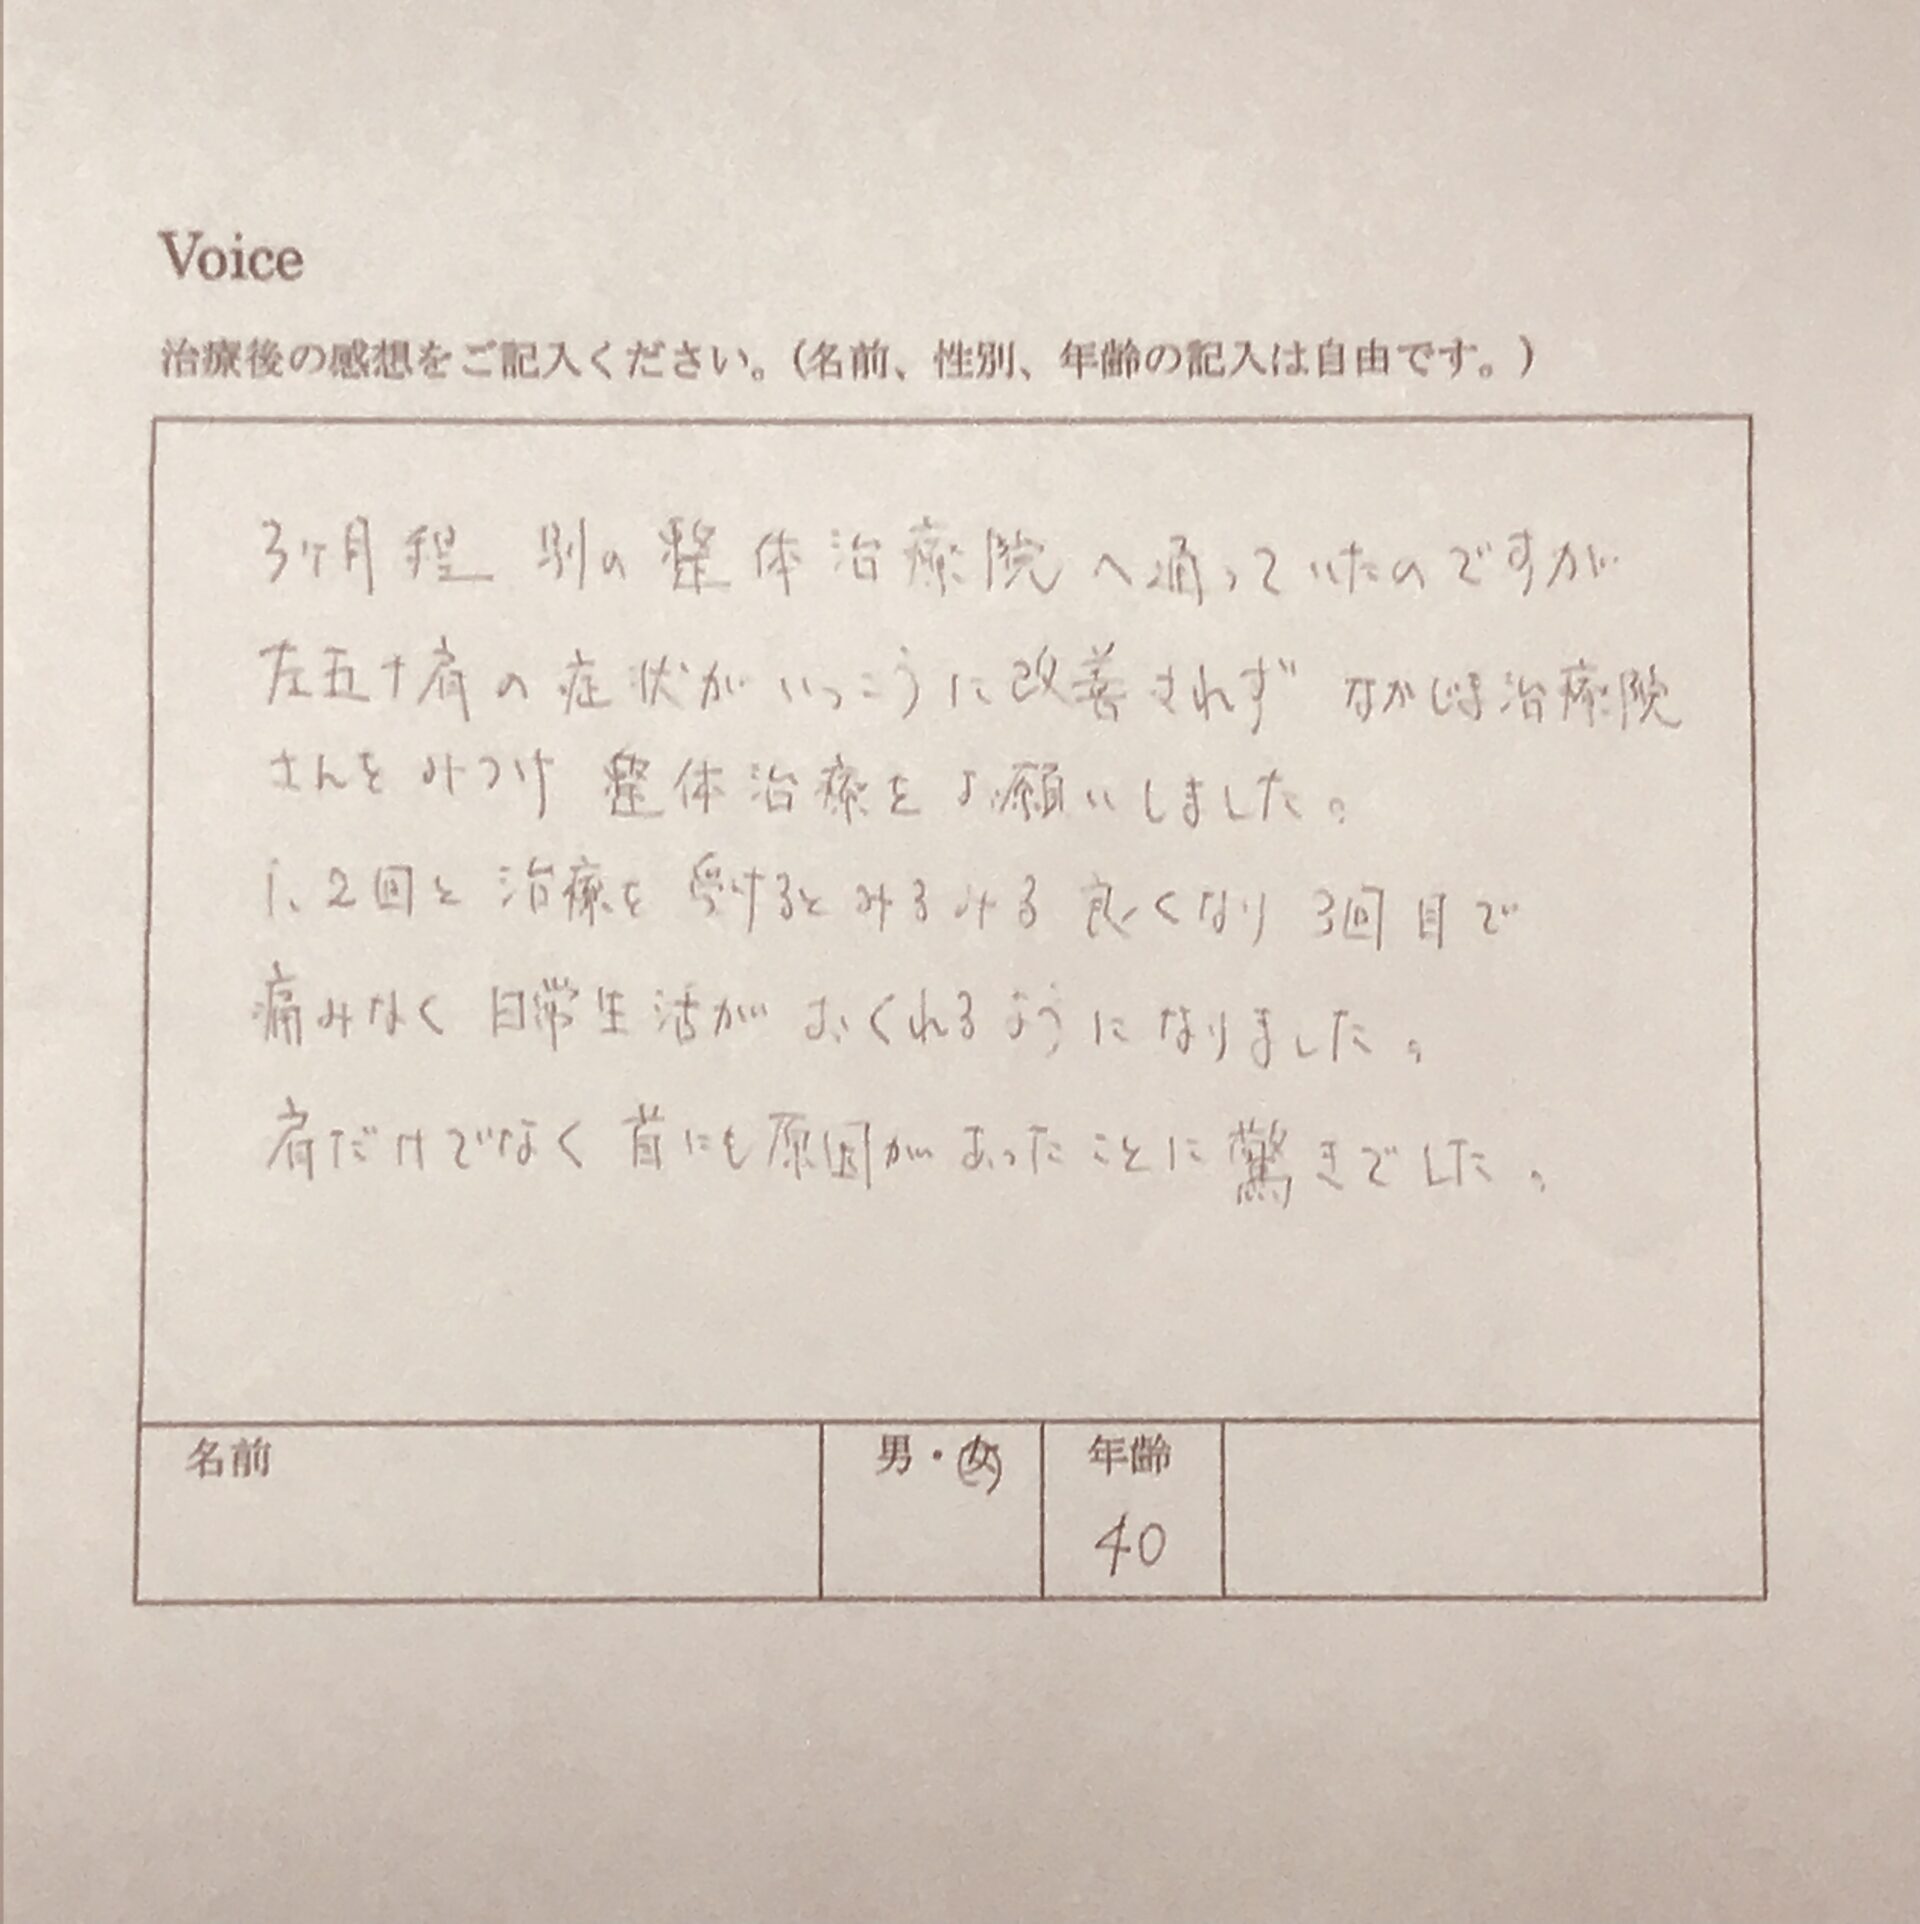 Voice
治療後の感想をご記入ください。（名前、性別、年齢の記入は自由です。）
3ヶ月程 別の整体治療院へ通っていたのですが
左五十肩の症状がいっこうに改善されず ながじま治療院
さんをみつけ 整体治療をお願いしました。
1、2回と治療を受けるとみるみる良くなり 3回目で
痛みなく日常生活がおくれるようになりました。
肩だけでなく首にも原因があったことに驚きでした。
名前 男・女 年齢
40